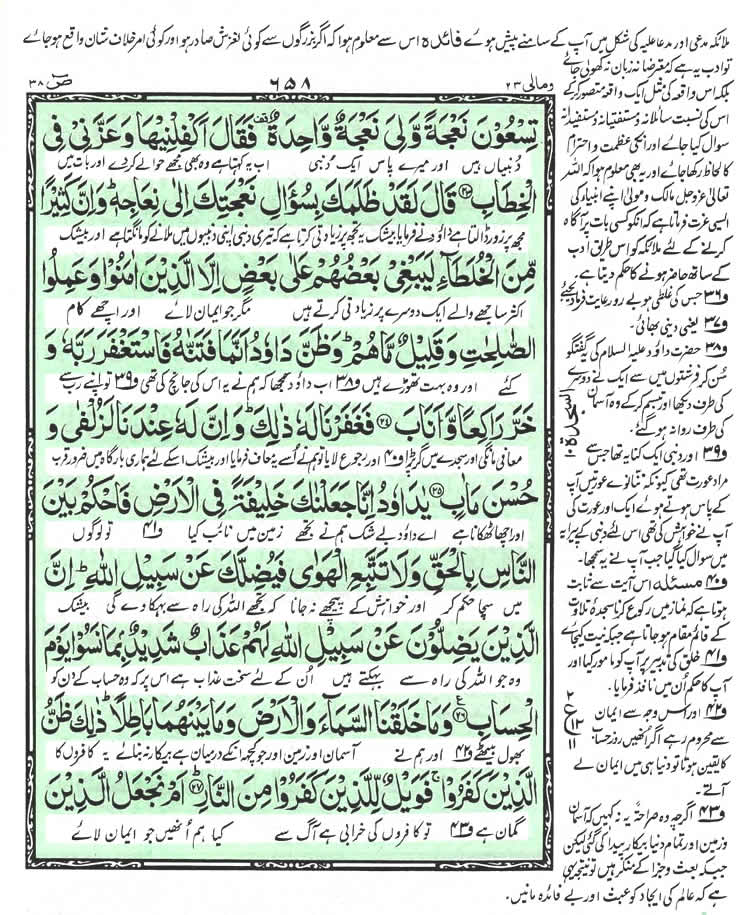 ملائکہ مدعی اور مدعا علیہ کی شکل میں آپ کے سامنے پیش ہوئے فائدہ اس سے معلوم ہوا کہ اگر بزرگوں سے کوئی لغزش صادر ہو اور کوئی امر خلاف شان واقع ہو جائے
ومالی ٢٣
٦٥٨
ص ٣٨
تِسْعُوْنَ نَعْجَةً وَّلِیَ نَعْجَةٌ وَّاحِدَةٌ فَقَالَ اَكْفِلْنِیْهَا وَعَزَّنِیْ فِی
دُنبیاں ہیں اور میرے پاس ایک دُنبی اب یہ کہتا ہے وہ بھی مجھے حوالے کردے اور بات میں
الْخِطَابِ ﴿۲۳﴾ قَالَ لَقَدْ ظَلَمَكَ بِسُؤَالِ نَعْجَتِكَ اِلٰی نِعَاجِهٖ ؕ وَاِنَّ كَثِیْرًا
مجھ پر زور ڈالتا ہے داؤد نے فرمایا بیشک یہ تجھ پر زیادتی کرتا ہے کہ تیری دُنبی اپنی دُنبیوں میں ملانے کو مانگتا ہے اور بیشک
مِّنَ الْخُلَطَآءِ لَیَبْغِیْ بَعْضُهُمْ عَلٰی بَعْضٍ اِلَّا الَّذِیْنَ اٰمَنُوْا وَعَمِلُوا
اکثر ساجھے والے ایک دوسرے پر زیادتی کرتے ہیں مگر جو ایمان لائے اور اچھے کام
الصّٰلِحٰتِ وَقَلِیْلٌ مَّا هُمْ ؕ وَظَنَّ دَاوٗدُ اَنَّمَا فَتَنّٰهُ فَاسْتَغْفَرَ رَبَّهٗ وَ
کئے اور وہ بہت تھوڑے ہیں و۳۸ اب داؤد سمجھا کہ ہم نے یہ اس کی جانچ کی تھی و۳۹ تو اپنے رب سے
خَرَّ رَاكِعًا وَّاَنَابَ ﴿۲۴﴾ فَغَفَرْنَا لَهٗ ذٰلِكَ ؕ وَاِنَّ لَهٗ عِنْدَنَا لَزُلْفٰی وَ
معافی مانگی اور سجدے میں گر پڑا و۴۰ اور رجوع لایا تو ہم نے اُسے یہ معاف فرمایا اور بیشک اسکے لئے ہماری بارگاہ میں ضرور قرب
حُسْنَ مَاٰبٍ ﴿۲۵﴾ یٰدَاوٗدُ اِنَّا جَعَلْنٰكَ خَلِیْفَةً فِی الْاَرْضِ فَاحْكُمْ بَیْنَ
اور اچھا ٹھکانا ہے اے داؤد بے شک ہم نے تجھے زمین میں نائب کیا و۴۱ تو لوگوں
النَّاسِ بِالْحَقِّ وَلَا تَتَّبِعِ الْهَوٰی فَیُضِلَّكَ عَنْ سَبِیْلِ اللّٰهِ ؕ اِنَّ
میں سچا حکم کر اور خواہش کے پیچھے نہ جانا کہ تجھے اللہ کی راہ سے بہکا دے گی بیشک
الَّذِیْنَ یَضِلُّوْنَ عَنْ سَبِیْلِ اللّٰهِ لَهُمْ عَذَابٌ شَدِیْدٌۢ بِمَا نَسُوْا یَوْمَ
وہ جو اللہ کی راہ سے بہکتے ہیں اُن کے لئے سخت عذاب ہے اس پر کہ وہ حساب کے دن کو
الْحِسَابِ ﴿۲۶﴾ وَمَا خَلَقْنَا السَّمَآءَ وَالْاَرْضَ وَمَا بَیْنَهُمَا بَاطِلًا ؕ ذٰلِكَ ظَنُّ
بھول بیٹھے و۴۲ اور ہم نے آسمان اور زمین اور جو کچھ انکے درمیان ہے بیکار نہ بنائے یہ کافروں کا
الَّذِیْنَ كَفَرُوْا ۚ فَوَیْلٌ لِّلَّذِیْنَ كَفَرُوْا مِنَ النَّارِ ﴿۲۷﴾ اَمْ نَجْعَلُ الَّذِیْنَ
گمان ہے و۴۳ تو کافروں کی خرابی ہے آگ سے کیا ہم اُنھیں جو ایمان لائے
تو ادب یہ ہے کہ معترضانہ زبان نہ کھولی جائے
بلکہ اس واقعہ کی مثل ایک واقعہ متصور کرکے
اس کی نسبت سائلانہ و مستفتیانہ و مستفیدانہ
سوال کیا جائے اور انکی عظمت و احترام
کا لحاظ رکھا جائے اور یہ بھی معلوم ہوا کہ اللہ
تعالیٰ عزوجل مالک و مولیٰ اپنے انبیاء کی
ایسی عزت فرماتا ہے کہ انکو کسی بات پر آگاہ
کرنے کے لئے ملائکہ کو اس طریق ادب
کے ساتھ حاضر ہونے کا حکم دیتا ہے.
و۳۶ جس کی غلطی ہو بے رو رعایت فرما دیجئے
و۳۷ یعنی دینی بھائی.
و۳۸ حضرت داؤد علیہ السلام کی گفتگو
سُن کر فرشتوں میں سے ایک نے دوسرے
کی طرف دیکھا اور تبسم کرکے وہ آسمان
کی طرف روانہ ہوگئے.
السجدة ١٠
و۳۹ اور دنبی ایک کنایہ تھا جس سے
مراد عورت تھی کیونکہ ننانوے عورتیں آپ
کے پاس ہوتے ہوئے ایک اور عورت کی
آپ نے خواہش کی تھی اس لئے دنبی کے پیرایہ
میں سوال کیا گیا جب آپ نے یہ سمجھا.
و۴۰ مسئلہ اس آیت سے ثابت
ہوتا ہے کہ نماز میں رکوع کرنا سجدہ تلاوت
کے قائم مقام ہو جاتا ہے جبکہ نیت کیجائے
و۴۱ خلق کی تدبیر پر آپ کو مامور کیا اور
آپ کا حکم اُن میں نافذ فرمایا.
٢ ع ١٢ ١١
و۴۲ اور اس وجہ سے ایمان
سے محروم رہے اگر اُنھیں روز حساب
کا یقین ہوتا تو دنیا ہی میں ایمان لے
آتے.
و۴۳ اگرچہ وہ صراحةً یہ نہ کہیں کہ آسمان
و زمین اور تمام دنیا بیکار پیدا کی گئی لیکن
جب کہ بعث و جزا کے منکر ہیں تو نتیجہ یہی
ہے کہ عالم کی ایجاد کو عبث اور بے فائدہ مانیں.